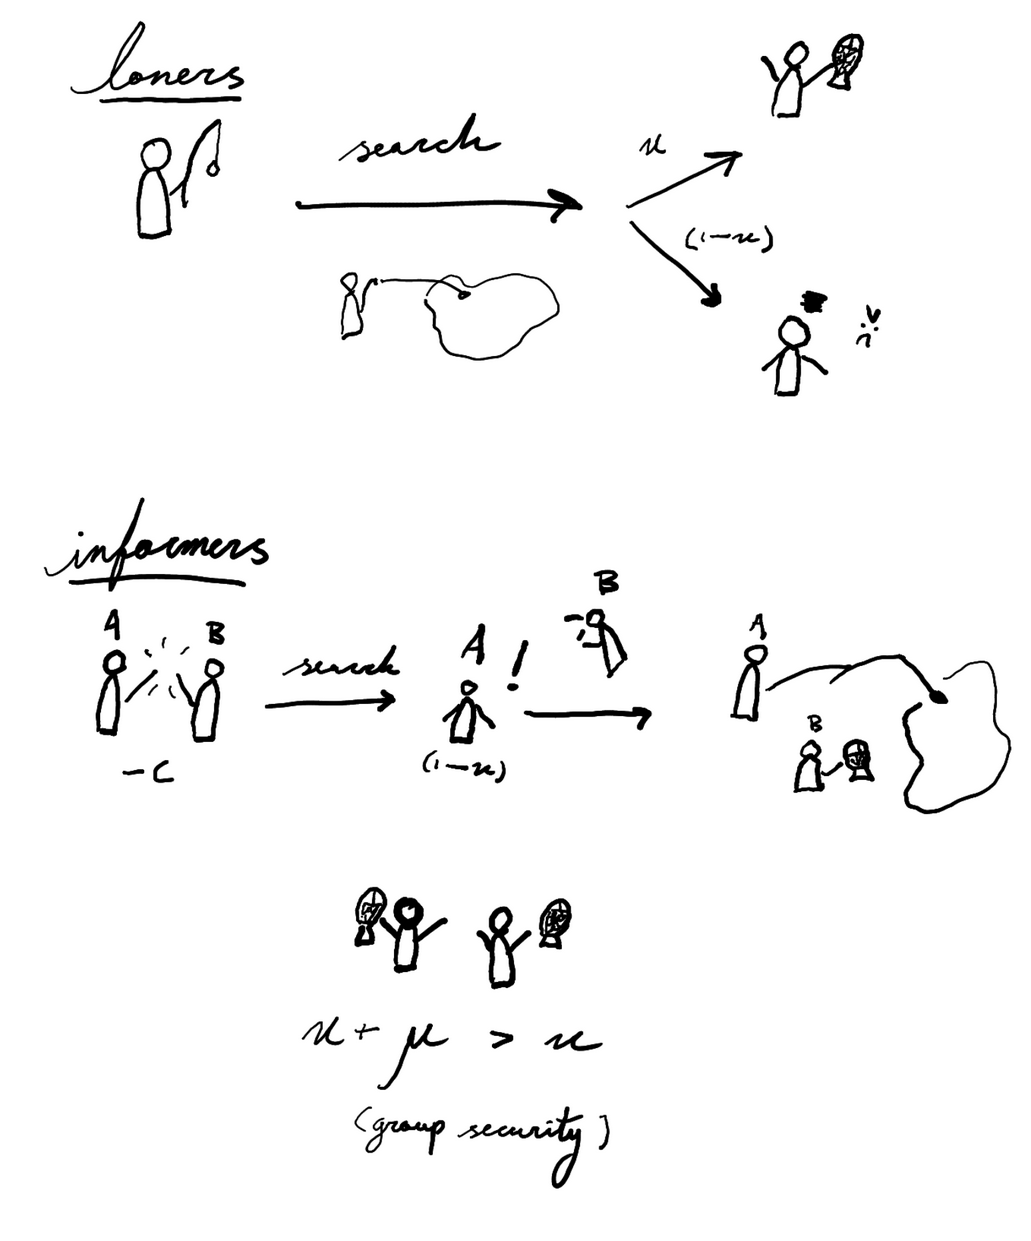 loners
search
x
(1-x)
informers
A
B
search
-c
A !
B
(1-x)
A
B
x + μ > x
(group security)